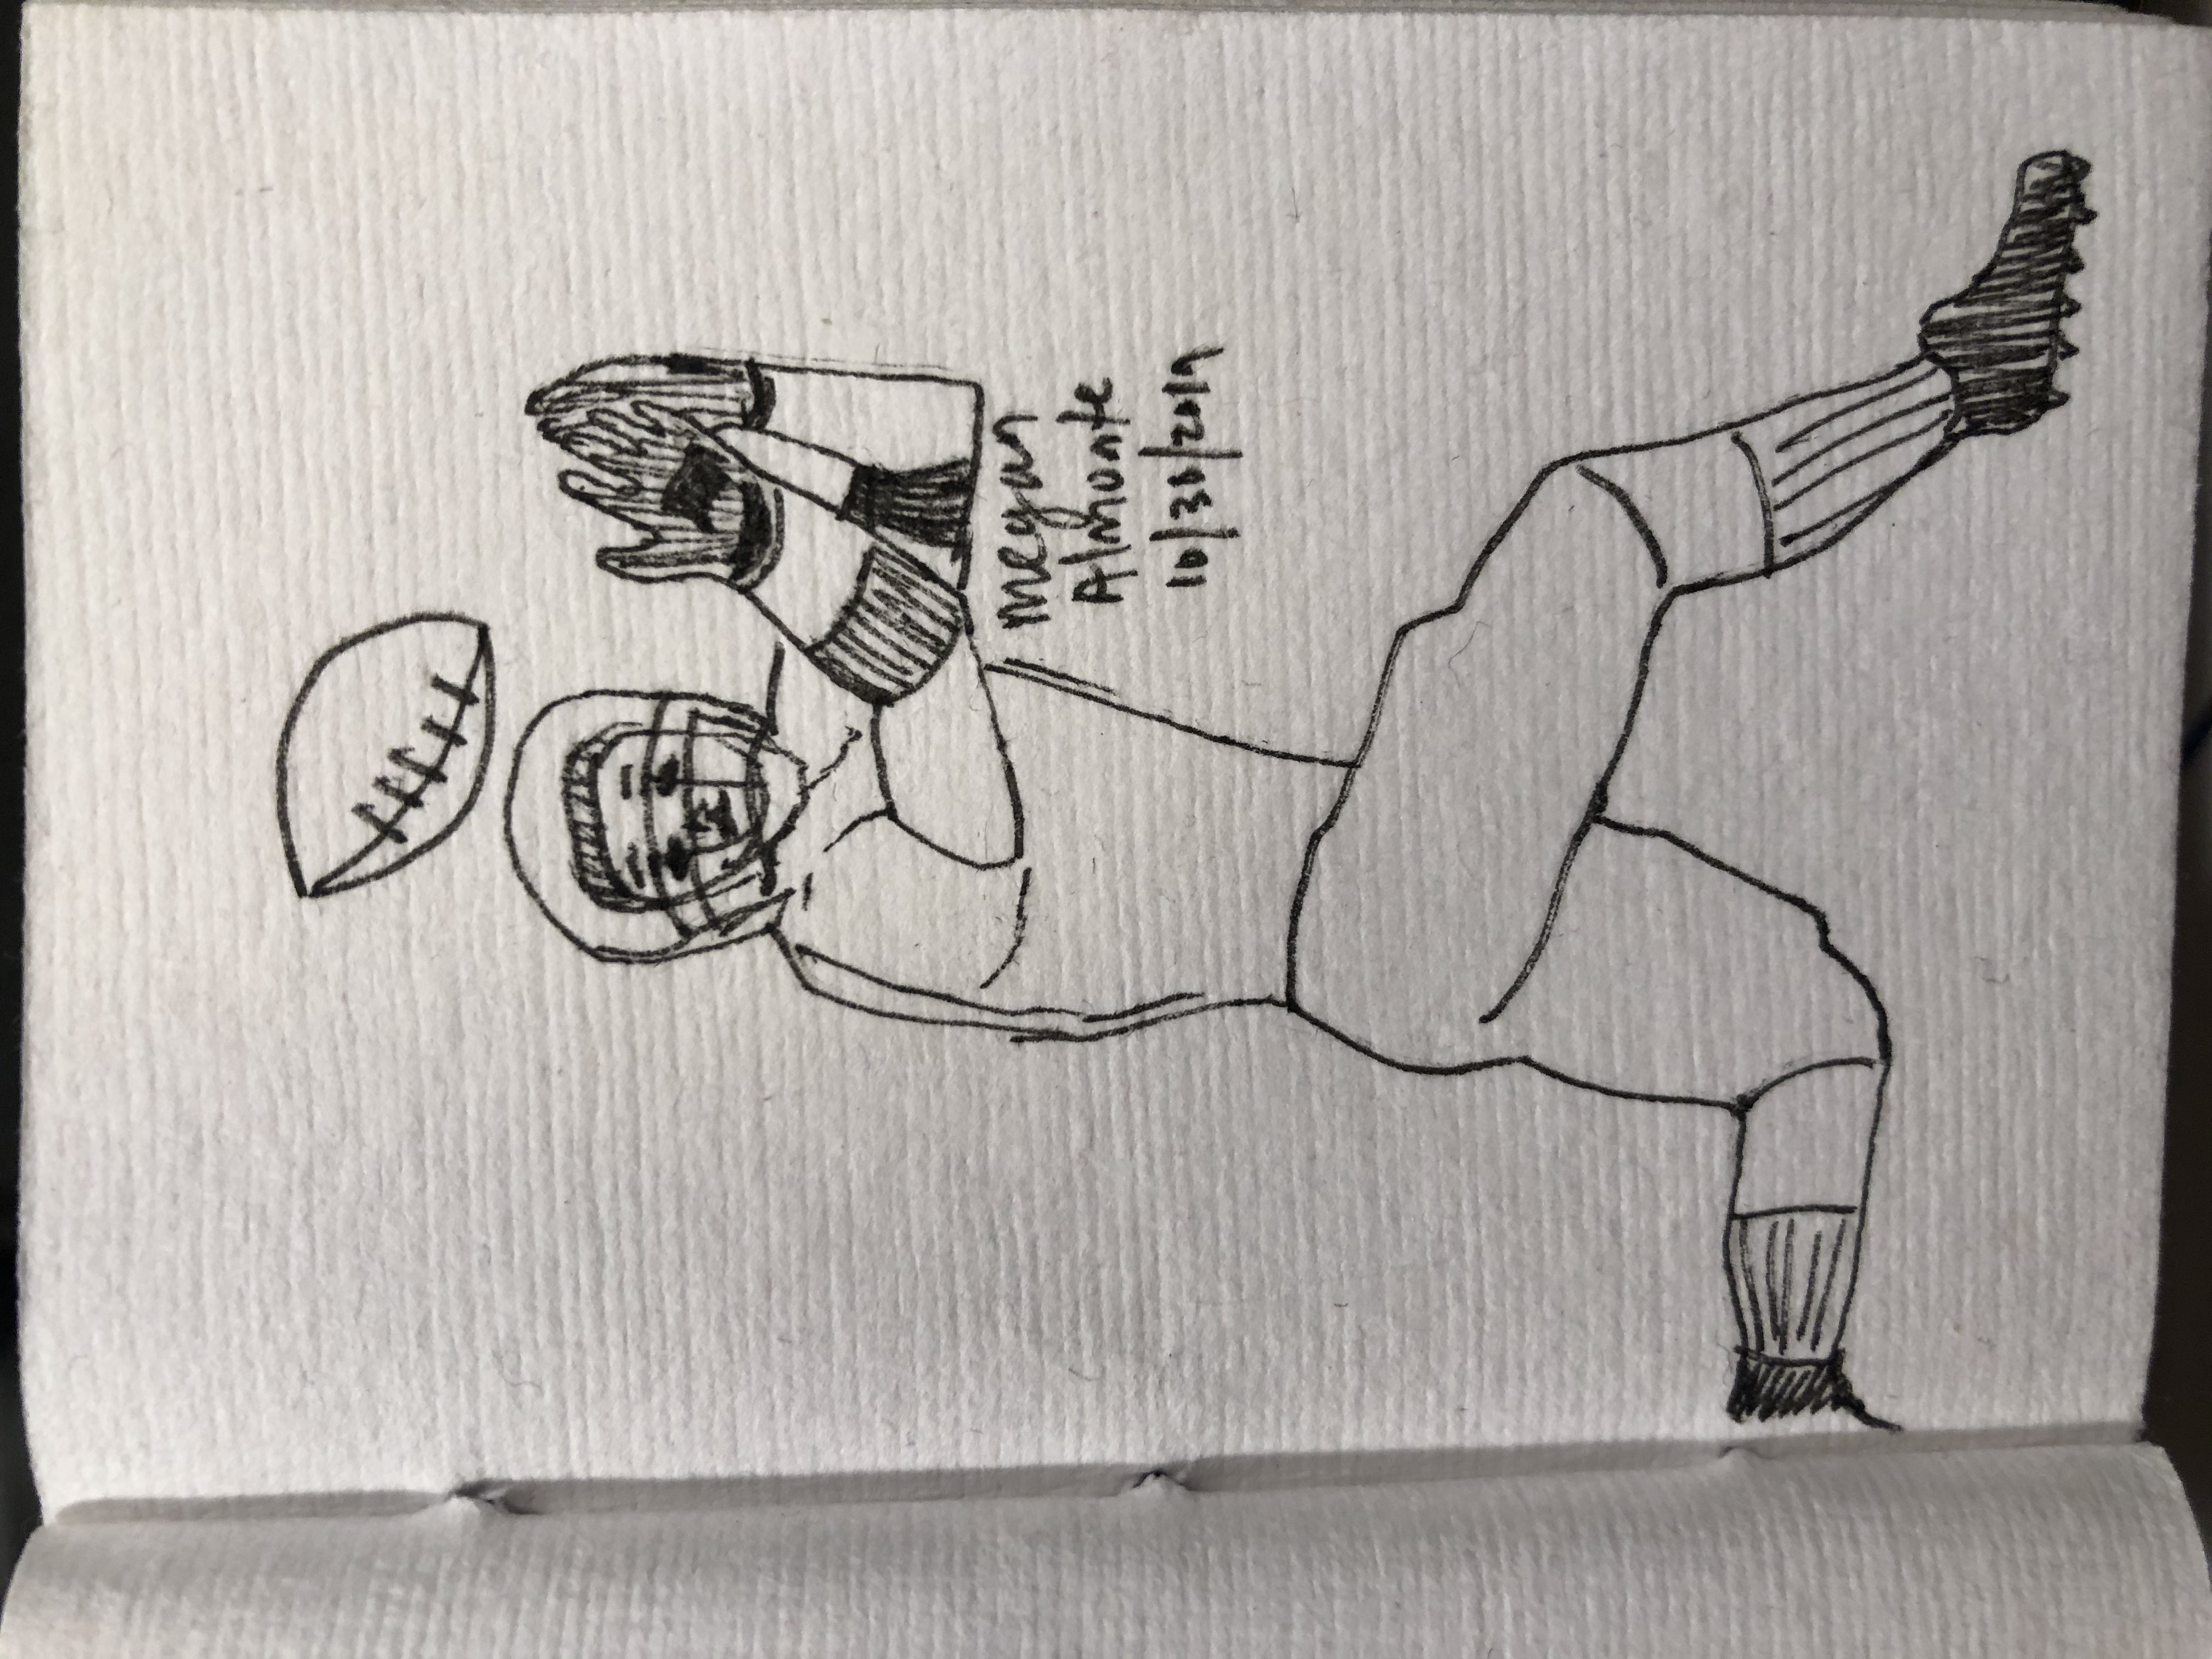 Megan
Almonte
10/30/2019